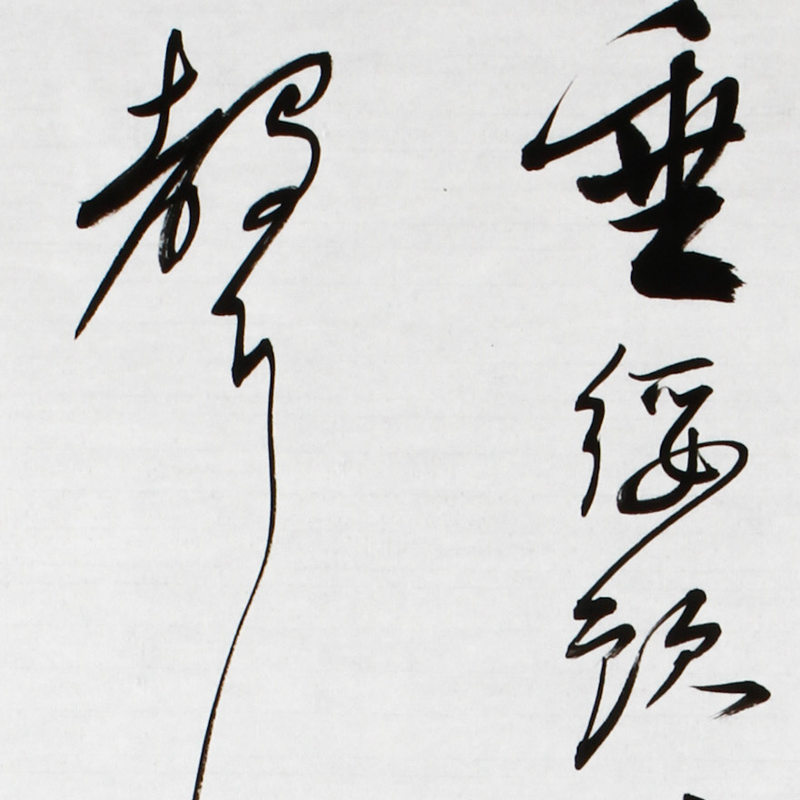 垂緌飲
聲